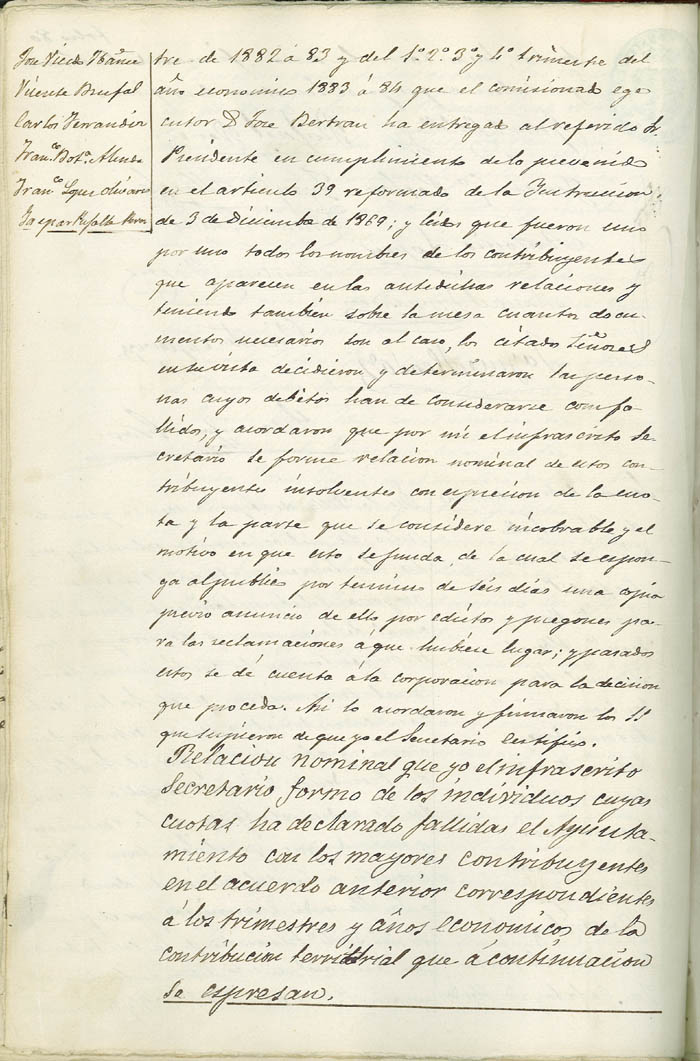 Jose Vicedo Ibañez
Vicente Brufal
Carlos Ferrandiz
Fran.co Bot.a
Fran.co
Gaspar
tre de 1882 á 83 y del 1º 2º 3º y 4º trimestre del
año economico 1883 á 84 que el comisionado ege
cutor D Jose Bertran ha entregado al referido Sr
Presidente en cumplimiento de lo prevenido
en el articulo 39 reformado de la Instruccion
de 3 de Diciembre de 1869; y leidos que fueron uno
por uno todos los nombres de los contribuyentes
que aparecen en las antedichas relaciones y
teniendo tambien sobre la mesa cuantos docu-
mentos necesarios son al caso, los citados Señores
en su vista decidieron y determinaron las perso-
nas cuyos debitos han de considerarse como fa-
llidos, y acordaron que por mi el infrascrito Se-
cretario se forme relacion nominal de estos con-
tribuyentes insolventes con espresion de la cuo-
ta y la parte que se considere incobrable y el
motivo en que esto se funda, de la cual se espon-
ga al publico por termino de seis dias una copia
previo anuncio de ello por edictos y pregones pa-
ra las reclamaciones á que hubiere lugar; y pasados
estos se dé cuenta á la corporacion para la decision
que proceda. Asi lo acordaron y firmaron los SS
que supieron de que yo el Secretario Certifico.
Relacion nominal que yo el infrascrito
Secretario formo de los individuos cuyas
cuotas ha declarado fallidas el Ayunta-
miento con los mayores contribuyentes
en el acuerdo anterior correspondientes
á los trimestres y años economicos de la
contribucion territorial que á continuacion
se espresan.